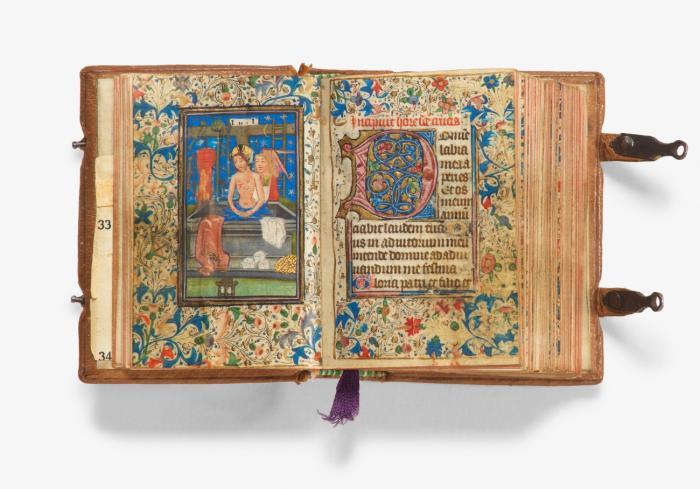 i n r i
33
34
Incipiut hore sce crucis
Domine
labia
mea a
peries
et os
meum
annun
ciabit laudem tuã
us in adiutorium meũ
intende domine ad adiu
uandum me festina
Gloria patri et filio et